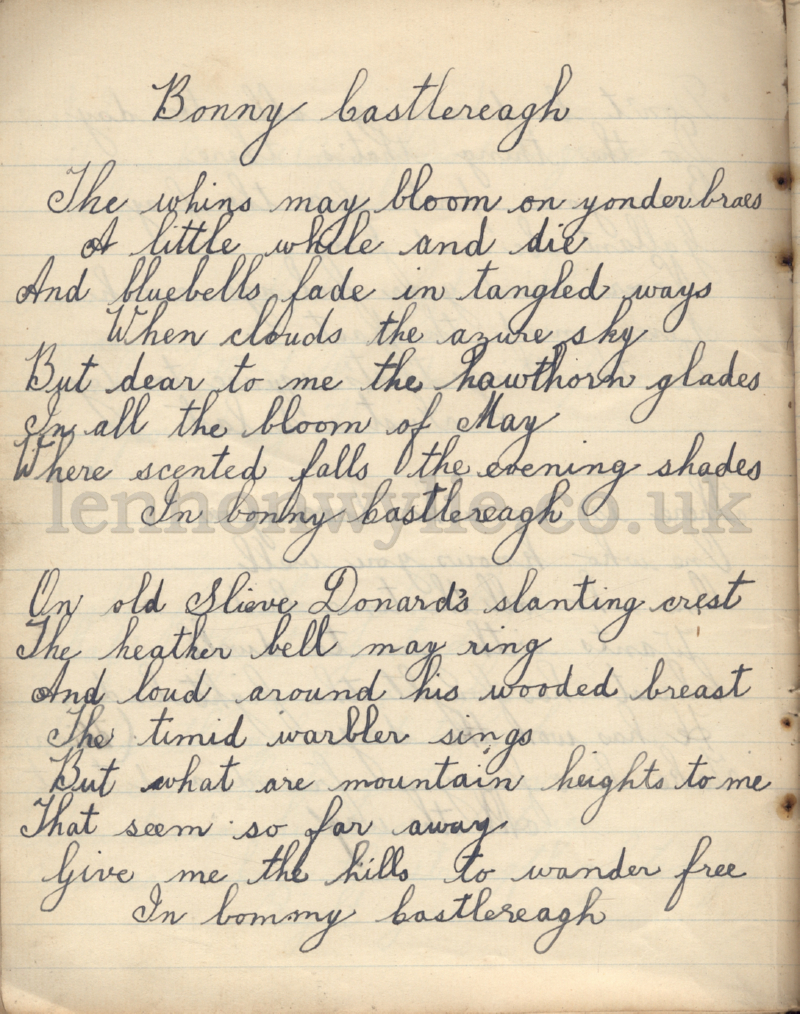 Bonny Castlereagh
The whins may bloom on yonder braes
A little while and die
And bluebells fade in tangled ways
When clouds the azure sky
But dear to me the hawthorn glades
In all the bloom of May
Where scented falls the evening shades
lennonwylie.co.uk
In bonny Castlereagh
On old Slieve Donard's slanting crest
The heather bell may ring
And loud around his wooded breast
The timid warbler sings
But what are mountain heights to me
That seem so far away
Give me the hills to wander free
In bommy Castlereagh